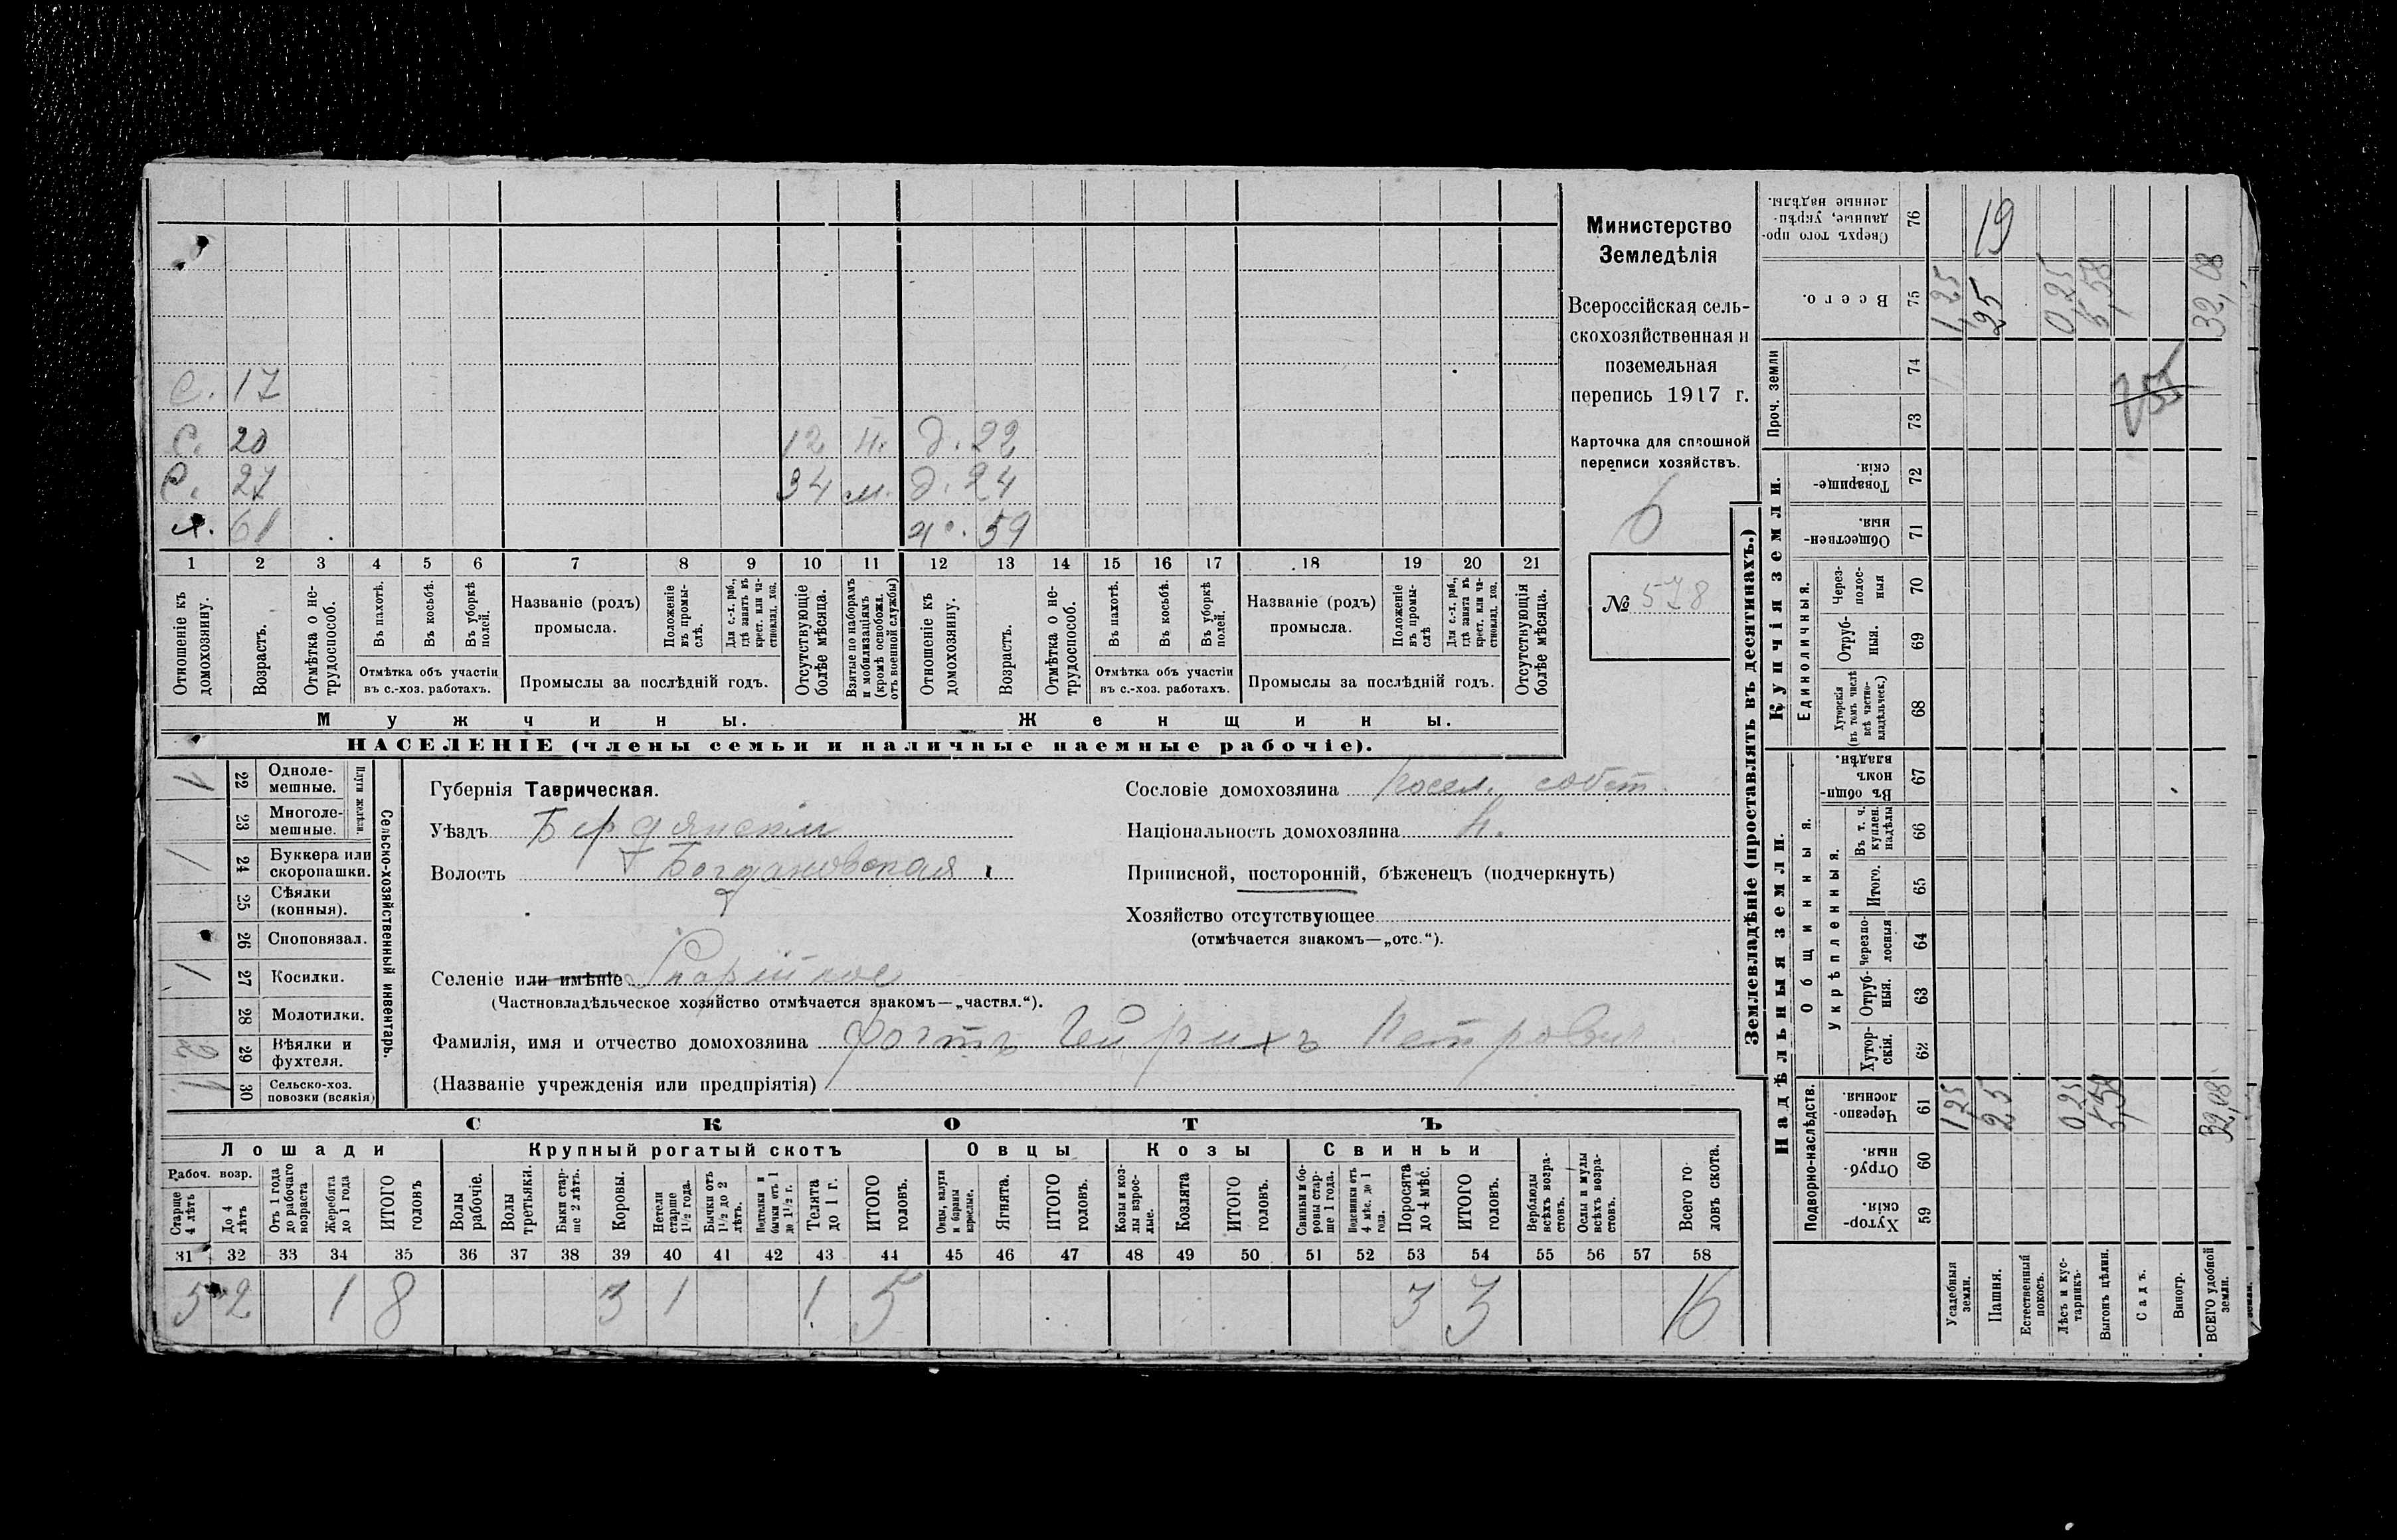 Министерство
Земледѣлія
Всероссійская сель-
скохозяйственная и
поземельная
перепись 1917 г.
Карточка для сплошной
переписи хозяйствъ.
6
№ 578
с. 17
с. 20 12 д. 22
с. 27 34 м. д. 24
х. 61 59
1 2 3 4 5 6 7 8 9 10 11 12 13 14 15 16 17 18 19 20 21
Отношеніе къ домохозяину.
Возрастъ.
Отмѣтка о не-трудоспособ.
Въ пахотѣ.
Въ косьбѣ.
Въ уборкѣ полей.
Отмѣтка объ участіи
въ с.-хоз. работахъ.
Названіе (родъ)
промысла.
Положеніе въ промы-слѣ.
Для с.-х. раб., гдѣ занятъ въ крест. или ча-стновлад. хоз.
Промыслы за послѣдній годъ.
Отсутствующіе болѣе мѣсяца.
Взятые по наборамъ и мобилизаціямъ (кромѣ освобожд. отъ военной службы)
Отношеніе къ домохозяину.
Возрастъ.
Отмѣтка о не-трудоспособ.
Въ пахотѣ.
Въ косьбѣ.
Въ уборкѣ полей.
Отмѣтка объ участіи
въ с.-хоз. работахъ.
Названіе (родъ)
промысла.
Положеніе въ промы-слѣ
Для с.-х. раб., гдѣ занята въ крест. или ча-стновлад. хоз.
Промыслы за послѣдній годъ.
Отсутствующія болѣе мѣсяца.
Мужчины. Женщины.
НАСЕЛЕНІЕ (члены семьи и наличные наемные рабочіе).
Сельско-хозяйственный инвентарь.
Плуги желѣзн.
22 Одноле-мешные. 1
23 Многоле-мешные.
24 Буккера или скоропашки. 1
25 Сѣялки (конныя).
26 Сноповязал.
27 Косилки. 1
28 Молотилки.
29 Вѣялки и фухтеля.
30 Сельско-хоз. повозки (всякія)
Губернія Таврическая.
Уѣздъ Бердянскій
Волость Богдановская
Селеніе или имѣніе
(Частновладѣльческое хозяйство отмѣчается знакомъ—„частвл.“).
Фамилія, имя и отчество домохозяина Фогтъ Гейрихъ Петрович
(Названіе учрежденія или предпріятія)
Сословіе домохозяина посел. собст.
Національность домохозяина Н.
Приписной, посторонній, бѣженецъ (подчеркнуть)
Хозяйство отсутствующее
(отмѣчается знакомъ—„отс.“).
СКОТЪ
Лошади Крупный рогатый скотъ Овцы Козы Свиньи
Рабоч. возр.
Старше 4 лѣтъ
До 4 лѣтъ
Отъ 1 года до рабочаго возраста
Жеребята до 1 года
ИТОГО головъ
Волы рабочіе.
Волы третьяки.
Быки стар-ше 2 лѣтъ.
Коровы.
Нетели старше 1½ года.
Бычки отъ 1½ до 2 лѣтъ.
Подтелки и бычки отъ 1 до 1½ г.
Телята до 1 г.
ИТОГО головъ.
Овцы, валухи и бараны взрослые.
Ягнята.
ИТОГО головъ.
Козы и коз-лы взрос-лые.
Козлята
ИТОГО головъ.
Свиньи и бо-ровы стар-ше 1 года.
Подсвинки отъ 4 мѣс. до 1 года.
Поросята до 4 мѣс.
ИТОГО головъ.
Верблюды всѣхъ возра-стовъ.
Ослы и мулы всѣхъ возра-стовъ.
Всего го-ловъ скота.
31 32 33 34 35 36 37 38 39 40 41 42 43 44 45 46 47 48 49 50 51 52 53 54 55 56 57 58
5 2 1 8 3 1 1 5 3 3 16
Землевладѣніе (проставлять въ десятинахъ.)
Надѣльныя земли. Купчія земли.
Подворно-наслѣдств.
Общинныя.
Укрѣпленныя.
Единоличныя.
Проч. земли
Хутор-скія. 59
Отруб-ныя. 60
Черезпо-лосныя. 61
Хутор-скія. 62
Отруб-ныя. 63
Черезпо-лосныя 64
Итого. 65
Въ т. ч. куплен. надѣлы 66
Въ общин-номъ владѣн. 67
Хуторскія (въ томъ числѣ всѣ частно-владѣльческ.) 68
Отруб-ныя. 69
Через-полос-ныя 70
Обществен-ныя. 71
Товарище-скія. 72
73
74
Всего. 75
Сверхъ того про-данные, укрѣп-ленные надѣлы. 76
Усадебныя земли. 1,25 1,25
Пашня. 25 25 19
Естественный покосъ.
Лѣсъ и кус-тарникъ. 0,25 0,25
Выгонъ цѣлин. 5,58 5,58
Садъ.
Виногр.
ВСЕГО удобной земли. 32,08 32,08